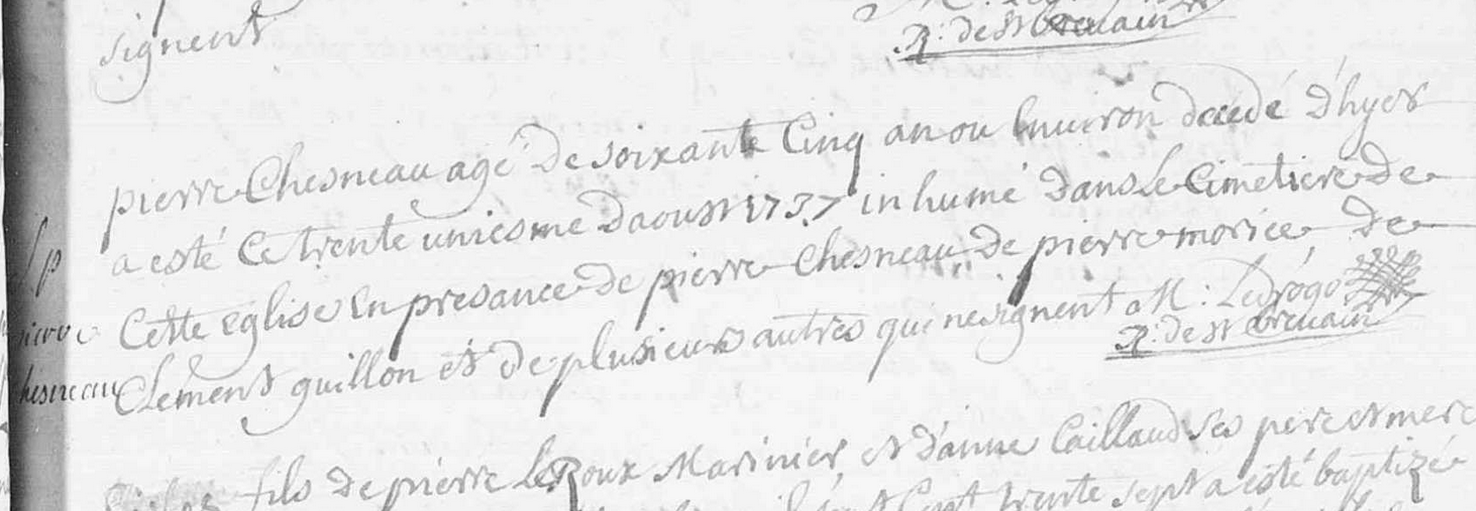 signent
R: de St Brevain
pierre Chesneau agé de soixante Cinq an ou Environ decedé d'hyer
a esté Ce trente uniesme daoust 1737 inhumé dans le Cimetiere de
Cette eglise En presance de pierre Chesneau de pierre morice, de
Clement guillon et de plusieurs autres qui ne signent M: Ledrogo
R: de St Brevain
S p
pierre
Chesneau
fils de pierre Le Roux Marinier, et d'anne Caillaud ses pere et mere
Cent trente sept a esté baptizé